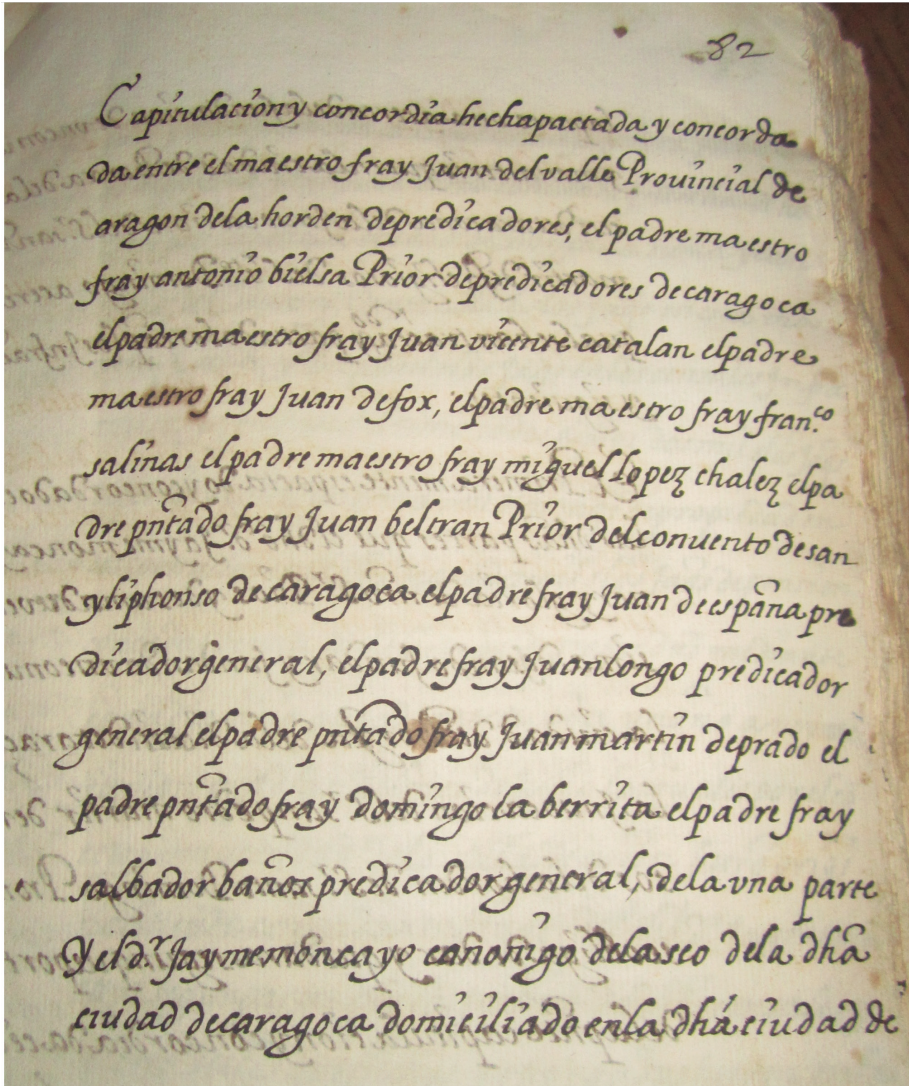 82
Capitulacion y concordia hecha pactada y concorda
da entre el maestro fray Juan del valle Prouincial de
aragon de la horden de predicadores, el padre maestro
fray antonio bielsa Prior de predicadores de caragoca
el padre maestro fray Juan vicente catalan el padre
maestro fray Juan de fox, el padre maestro fray fran.co
salinas el padre maestro fray miguel lopez chalez el pa
dre pñtado fray Juan beltran Prior del conuento de san
yliphonso de caragoca el padre fray Juan de españa pre
dicador general, el padre fray Juan longo predicador
general el padre pñtado fray Juan martin de prado el
padre pñtado fray domingo la berrita el padre fray
salbador baños predicador general, de la vna parte
Y el d.r Jayme moncayo canonigo de la seo de la dhã
ciudad de caragoca domiciliado en la dhá ciudad de